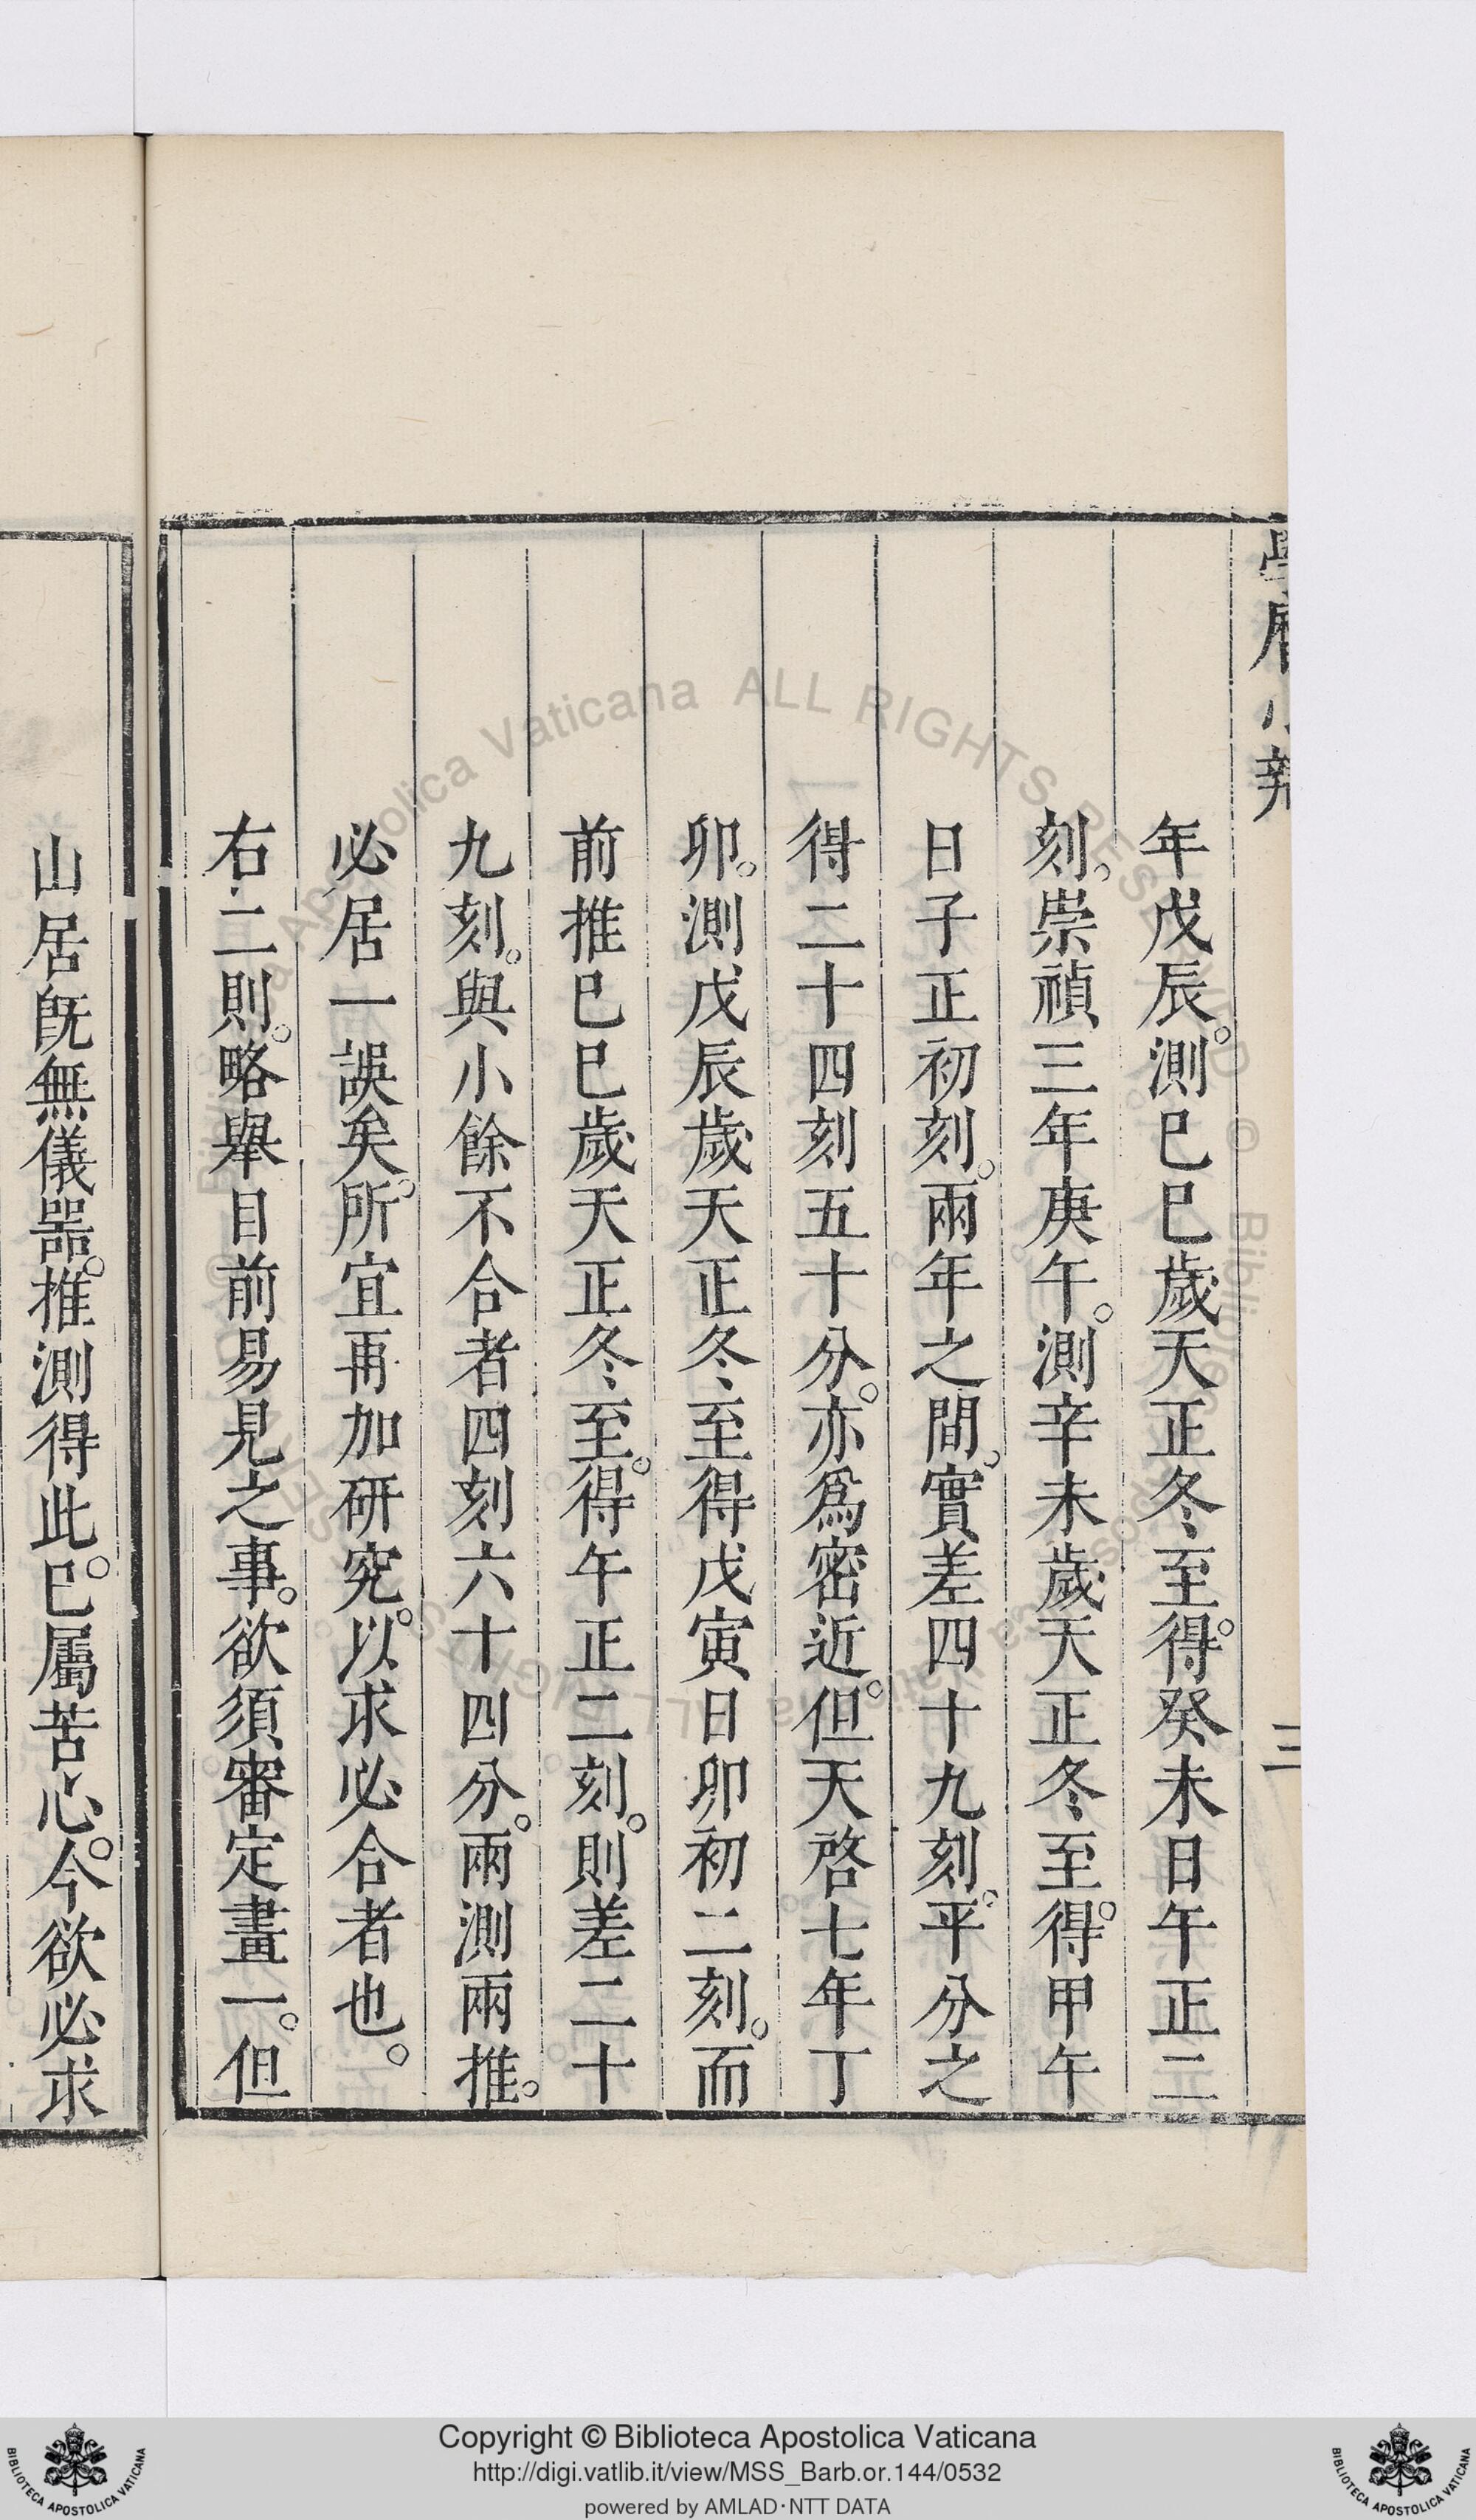 年戊辰。測己巳歲天正冬至。得癸未日午正二
刻。崇禎三年庚午。測辛未歲天正冬至得。甲午
日子正初刻。兩年之間。實差四十九刻。平分之
得二十四刻五十分。亦爲密近。但天啓七年丁
卯。測戊辰歲天正冬至得戊寅日卯初二刻。而
前推己巳歲天正冬至。得午正二刻。則差二十
九刻。與小餘不合者四刻六十四分。兩測兩推。
必居一誤矣。所宜再加研究。以求必合者也。
右二則。略舉目前易見之事。欲須審定畫一。但
山居旣無儀器。推測得此。已屬苦心。今欲必求
三
Copyright © Biblioteca Apostolica Vaticana
http://digi.vatlib.it/view/MSS_Barb.or.144/0532
powered by AMLAD·NTT DATA
BIBLIOTECA APOSTOLICA VATICANA
BIBLIOTECA APOSTOLICA VATICANA